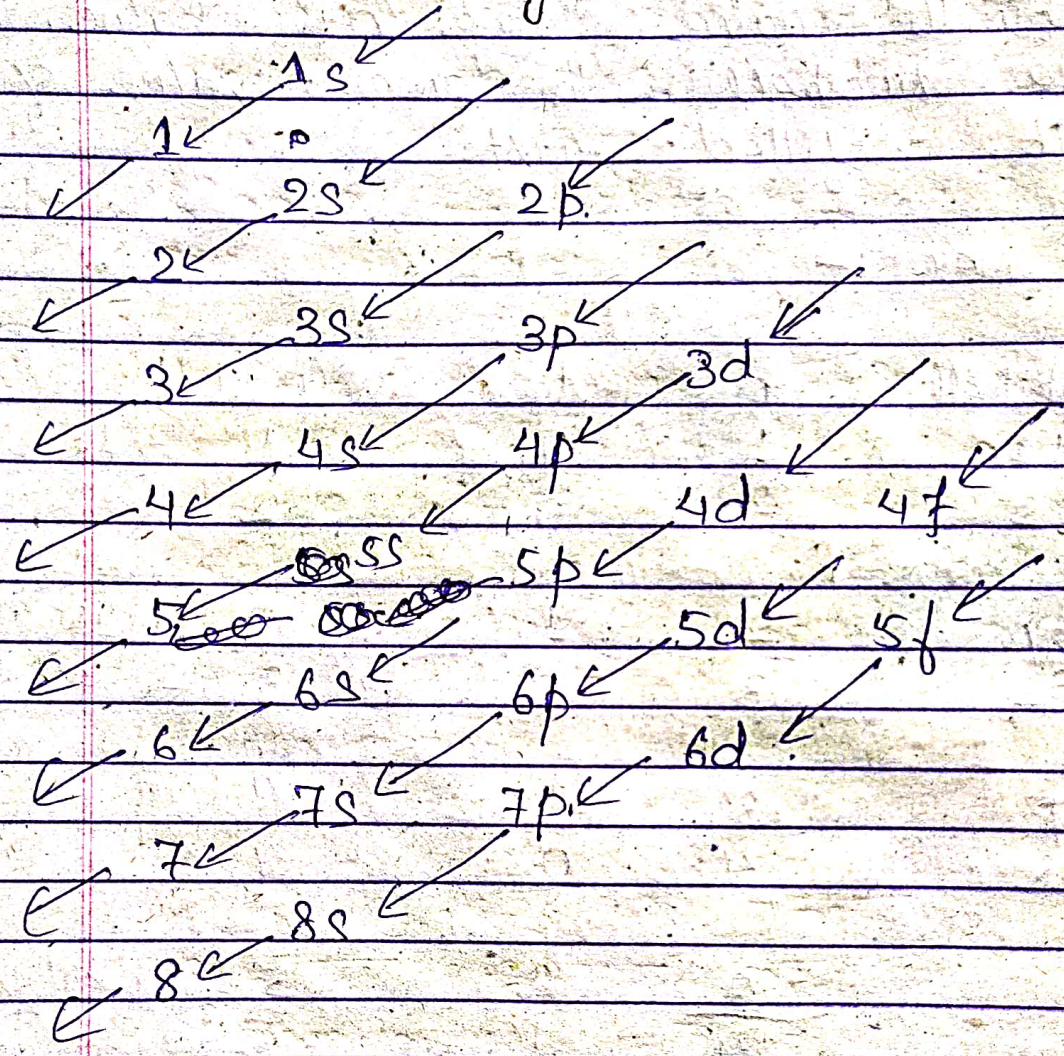 1s
1
2s 2p.
2
3s 3p
3 3d
4s 4p
4 4d 4f
5s 5p
5 5d 5f
6s 6p
6 6d
7s 7p.
7
8s
8